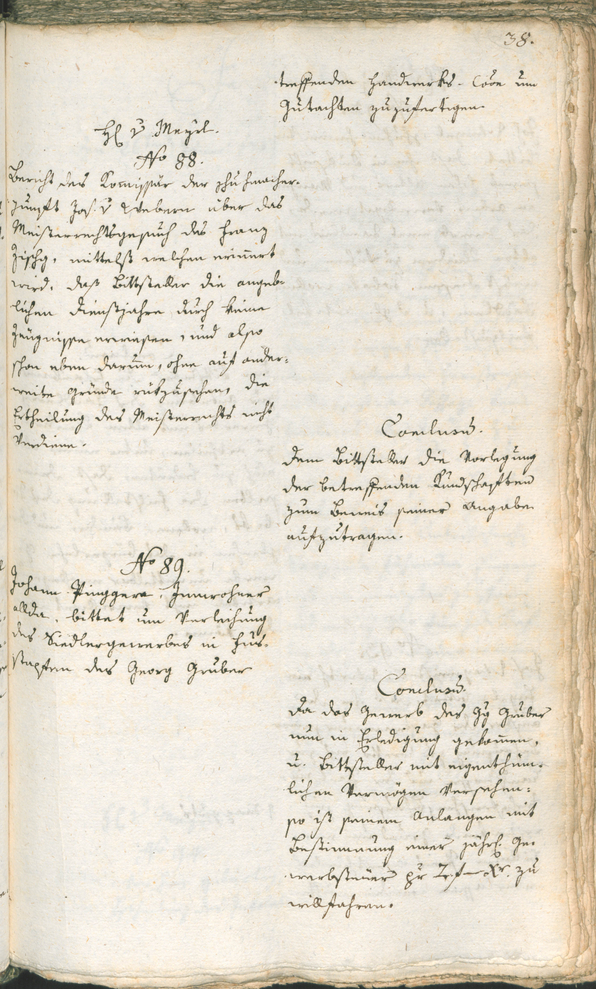 38.
treffenden Handwerks-Core um
Gutachten zuzufertigen.
H. v. Mayrl.
No 88.
Bericht des Komissär der Schuhmacher-
zunft Jos. v Webern über das
Meisterrechtsgesuch des Franz
mittelst welchen erinnert
wird, daß Bittsteller die angeb-
lichen Dienstjahre durch keine
Zeugnisse erwiesen, und also
schon eben darum, ohne auf ander-
weite Gründe rükzusehen, die
Ertheilung des Meisterrechts nicht
verdiene.
Conclusum.
Dem Bittsteller die Vorlegung
der betreffenden Kundschaften
zum Beweis seiner Angabe
aufzutragen.
No 89.
Johann Pinggera, Innwohner
allda, bittet um Verleihung
des Siedlergewerbes in Fus-
stapfen des Georg Gruber
Conclusum
Da das Gewerb des Gg Gruber
nun in Erledigung gekomen,
u. Bittsteller mit eigenthüm-
lichen Vermögen versehen:
so ist seinem Anlangen mit
Bestimmung einer jährl. Ge-
werbsteuer pr 2 f — xr. zu
willfahren.